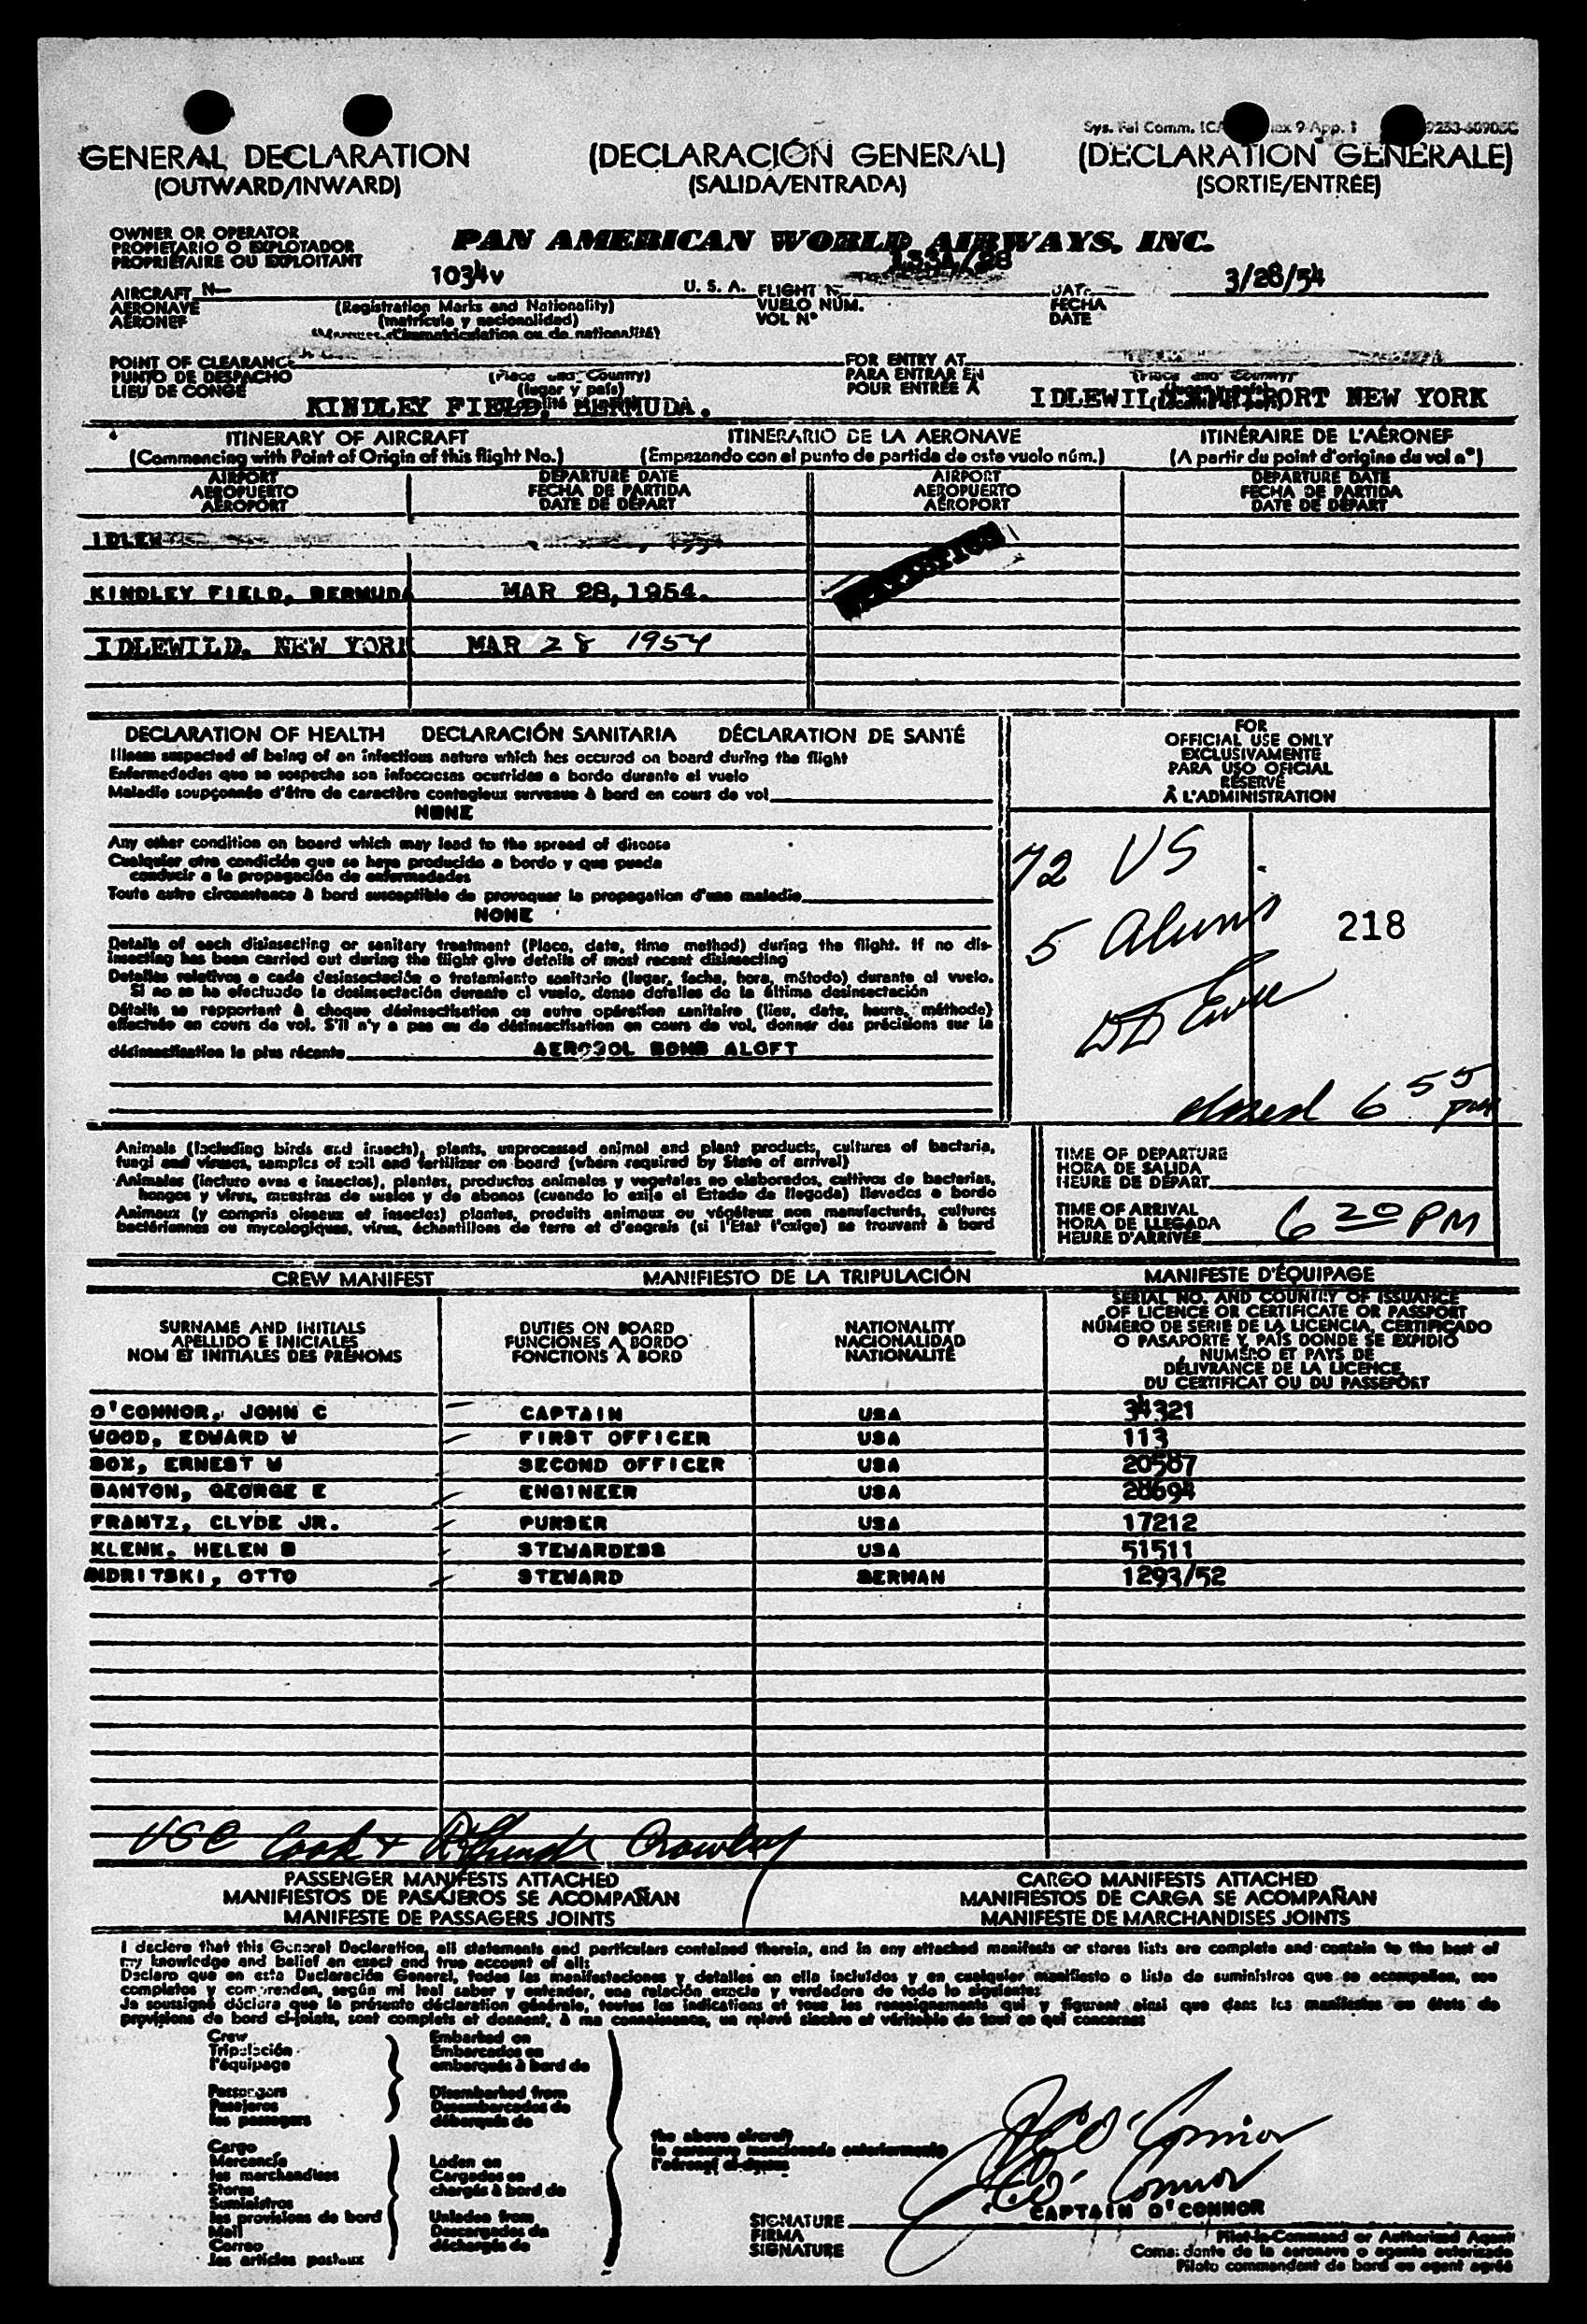 Sys. Fal Comm. 9 App. 1
GENERAL DECLARATION (DECLARACIÓN GENERAL) (DECLARATION GENERALE)
(OUTWARD/INWARD) (SALIDA/ENTRADA) (SORTIE/ENTREE)
OWNER OR OPERATOR
PROPIETARIO O EXPLOTADOR
PROPRIÉTAIRE OU EXPLOITANT
PAN AMERICAN WORLD AIRWAYS, INC.
AIRCRAFT N— 1034v U. S. A. FLIGHT DATE 3/28/54
AERONAVE (Registration Marks and Nationality) VUELO NÚM. FECHA
AERONEF (matrícula y nacionalidad) VOL Nº DATE
d'immatriculation ou de nationalité)
POINT OF CLEARANCE FOR ENTRY AT
PUNTO DE DESPACHO (Place and Country) PARA ENTRAR EN (Place and Country)
LIEU DE CONGÉ (lugar y país) POUR ENTRÉE À
KINDLEY FIELD, BERMUDA. NEW YORK
ITINERARY OF AIRCRAFT ITINERARIO DE LA AERONAVE ITINÉRAIRE DE L'AÉRONEF
(Commencing with Point of Origin of this flight No.) (Empezando con el punto de partida de este vuelo núm.) (A partir du point d'origine du vol nº)
AIRPORT DEPARTURE DATE AIRPORT DEPARTURE DATE
AEROPUERTO FECHA DE PARTIDA AEROPUERTO FECHA DE PARTIDA
AÉROPORT DATE DE DÉPART AÉROPORT DATE DE DÉPART
KINDLEY FIELD, BERMUDA MAR 28, 1954.
IDLEWILD, NEW YORK MAR 28 1954
DECLARATION OF HEALTH DECLARACIÓN SANITARIA DÉCLARATION DE SANTÉ
Illness suspected of being of an infectious nature which has occured on board during the flight
Enfermedades que se sospecha son infecciosas ocurridas a bordo durante el vuelo
Maladie soupçonnée d'être de caractère contagieux survenue à bord en cours de vol
NONE
Any other condition on board which may lead to the spread of disease
Cualquier otra condición que se haya producido a bordo y que pueda
conducir a la propagación de enfermedades
Toute autre circonstance à bord susceptible de provoquer la propagation d'une maladie
NONE
Details of each disinsecting or sanitary treatment (Place, date, time method) during the flight. If no dis-
insecting has been carried out during the flight give details of most recent disinsecting
Detalles relativos a cada desinsectación o tratamiento sanitario (lugar, fecha, hora, método) durante el vuelo.
Si no se ha efectuado la desinsectación durante el vuelo, dense detalles de la última desinsectación
Détails se rapportant à choque désinsectisation ou autre opération sanitaire (lieu, date, heure, méthode)
effectuée en cours de vol. S'il n'y a pas eu de désinsectisation en cours de vol, donner des précisions sur la
désinsectisation la plus récente AEROSOL BOMB ALOFT
FOR
OFFICIAL USE ONLY
EXCLUSIVAMENTE
PARA USO OFICIAL
RÉSERVÉ
À L'ADMINISTRATION
72 US
5 Aliens
218
closed 6 55 pm
Animals (including birds and insects), plants, unprocessed animal and plant products, cultures of bacteria,
fungi and viruses, samples of soil and fertilizer on board (where required by State of arrival)
Animales (incluro aves e insectos), plantas, productos animales y vegetales no elaborados, cultivos de bacterias,
hongos y virus, muestras de suelos y de abonos (cuando lo exija el Estado de llegada) llevados a bordo
Animaux (y compris oiseaux et insectes) plantes, produits animaux ou végétaux non manufacturés, cultures
bactériennes ou mycologiques, virus, échantillons de terre et d'engrais (si l'Etat l'exige) se trouvant à bord
TIME OF DEPARTURE
HORA DE SALIDA
HEURE DE DÉPART
TIME OF ARRIVAL
HORA DE LLEGADA
HEURE D'ARRIVÉE 6 20 PM
CREW MANIFEST MANIFIESTO DE LA TRIPULACIÓN MANIFESTE D'ÉQUIPAGE
SURNAME AND INITIALS
APELLIDO E INICIALES
NOM ET INITIALES DES PRÉNOMS
DUTIES ON BOARD
FUNCIONES A BORDO
FONCTIONS À BORD
NATIONALITY
NACIONALIDAD
NATIONALITÉ
SERIAL NO. AND COUNTRY OF ISSUANCE
OF LICENCE OR CERTIFICATE OR PASSPORT
NÚMERO DE SERIE DE LA LICENCIA, CERTIFICADO
O PASAPORTE Y PAÍS DONDE SE EXPIDIÓ
NUMÉRO ET PAYS DE
DÉLIVRANCE DE LA LICENCE,
DU CERTIFICAT OU DU PASSEPORT
O'CONNOR, JOHN C CAPTAIN USA 34321
WOOD, EDWARD W FIRST OFFICER USA 113
BOX, ERNEST W SECOND OFFICER USA 20587
BANTON, GEORGE E ENGINEER USA 28694
FRANTZ, CLYDE JR. PURSER USA 17212
KLENK, HELEN B STEWARDESS USA 51511
OTTO STEWARD GERMAN 1293/52
USC Cook + Crowley
PASSENGER MANIFESTS ATTACHED CARGO MANIFESTS ATTACHED
MANIFIESTOS DE PASAJEROS SE ACOMPAÑAN MANIFIESTOS DE CARGA SE ACOMPAÑAN
MANIFESTE DE PASSAGERS JOINTS MANIFESTE DE MARCHANDISES JOINTS
I declare that this General Declaration, all statements and particulars contained therein, and in any attached manifests or stores lists are complete and contain to the best of
my knowledge and belief an exact and true account of all:
Declaro que en esta Declaración General, todas las manifestaciones y detalles en ella incluídos y en cualquier manifiesto o lista de suministros que se acompañen, son
completos y comprenden, según mi leal saber y entender, una relación exacta y verdadera de todo lo siguiente:
Je soussigné déclare que la présente déclaration générale, toutes les indications et tous les renseignements qui y figurent ainsi que dans les manifestes ou états de
provisions de bord ci-joints, sont complets et donnent, à ma connaissance, un relevé sincère et véritable de tout ce qui concerne:
Crew
Tripulación
l'équipage
Passengers
Pasajeros
les passagers
Embarked on
Embarcados en
embarqués à bord de
Disembarked from
Desembarcados de
débarqués de
Cargo
Mercancía
les marchandises
Stores
Suministros
les provisions de bord
Mail
Correo
les articles postaux
Laden on
Cargados en
chargés à bord de
Unladen from
Descargados de
déchargés de
the above aircraft
la aeronave mencionada anteriormente
l'aéronef ci-dessus
JC O'Connor
O'Connor
CAPTAIN O'CONNOR
SIGNATURE
FIRMA
SIGNATURE
Pilot-in-Command or Authorized Agent
Comandante de la aeronave o agente autorizado
Pilote commandant de bord ou agent agréé